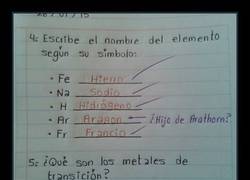 26/01/15
4: Escribe el nombre del elemento
según su símbolo:
• Fe Hierro
• Na Sodio
• H Hidrógeno
• Ar Aragon ¿Hijo de Arathorn?
• Fr Francio
5: ¿Qué son los metales de
transición?